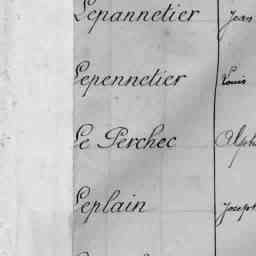 Lepannetier Jean
Lepennetier Louis
Le Perchec Alph
Leplain Joseph